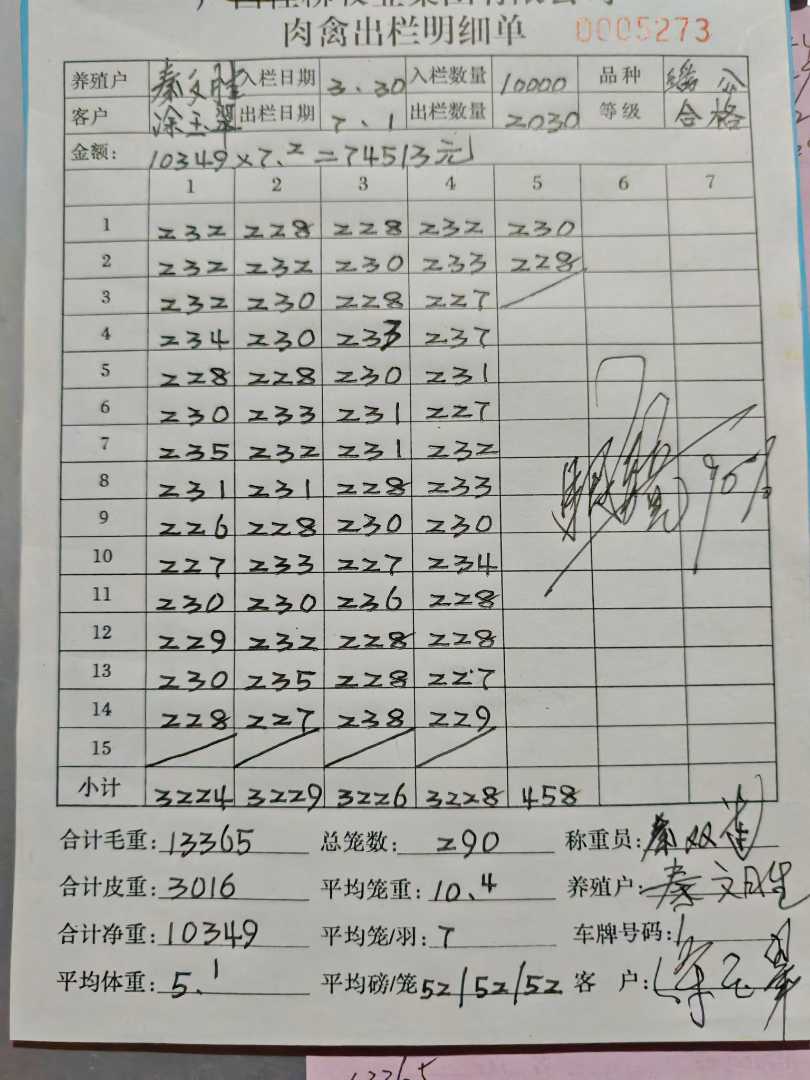 肉禽出栏明细单 0005273
养殖户 秦文胜 入栏日期 3.30 入栏数量 10000 品种
客户 涂玉翠 出栏日期 7.1 出栏数量 2030 等级 合格
金额: 10349×7.2=74513元
1 2 3 4 5 6 7
1 232 228 228 232 230
2 232 232 230 233 228
3 232 230 228 227
4 234 230 233 237
5 228 228 230 231
6 230 233 231 227
7 235 232 231 232
8 231 231 228 233
9 226 228 230 230
10 227 233 227 234
11 230 230 236 228
12 229 232 228 228
13 230 235 228 227
14 228 227 238 229
15
小计 3224 3229 3226 3228 458
合计毛重: 13365 总笼数: 290 称重员: 秦双
合计皮重: 3016 平均笼重: 10.4 养殖户: 秦文胜
合计净重: 10349 平均笼/羽: 7 车牌号码:
平均体重: 5.1 平均磅/笼 52/52/52 客 户: